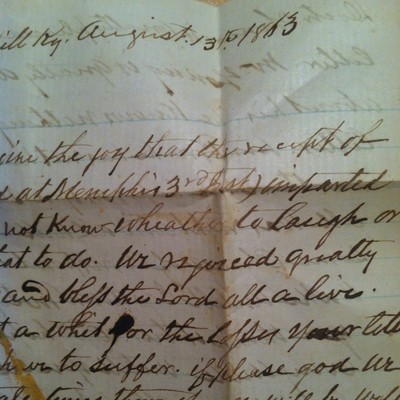 ill Ky. August. 13th 1863
gine the joy that the receipt of
at Memphis 3rd Inst) imparted
not Know Wheather to Laugh or
at to do. We rejoiced greatly
and bless the Lord all a live.
t a whit for the Losses your
to suffer. if please god We